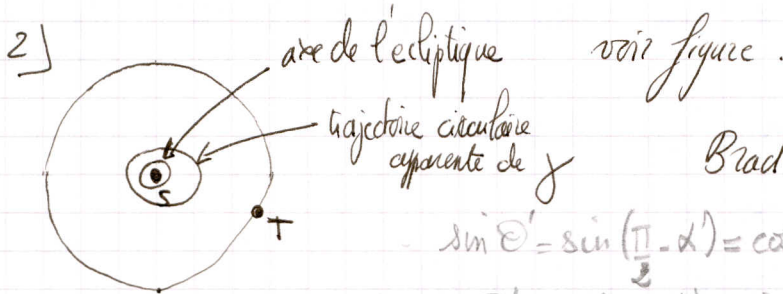 2]
axe de l'écliptique voir figure.
trajectoire circulaire
apparente de γ Brad
S
T
sin Θ' = sin (π/2 - α') = co